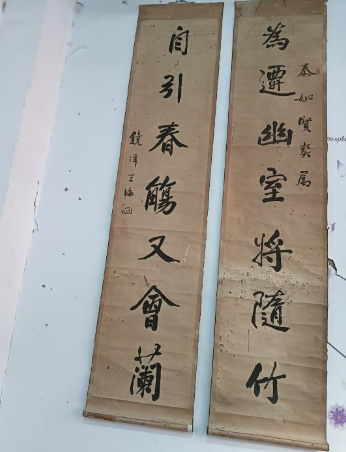 為遷幽室將隨竹
泰如賢契屬
自引春觴又會蘭
鏡潭王海涵